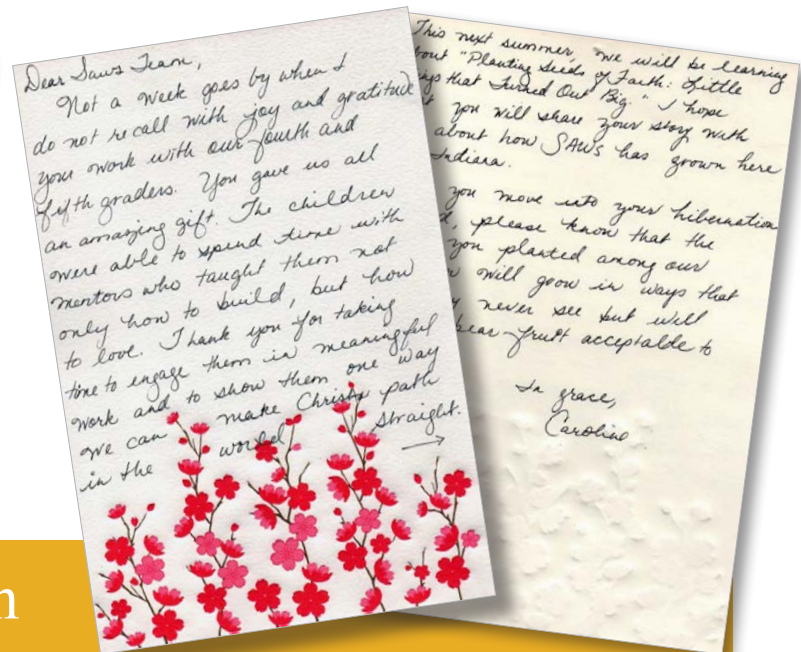 Dear Saws Team,
Not a week goes by when I
do not recall with joy and gratitude
your work with our fourth and
fifth graders. You gave us all
an amazing gift. The children
were able to spend time with
mentors who taught them not
only how to build, but how
to love. Thank you for taking
time to engage them in meaningful
work and to show them one way
we can make Christs path
in the world straight.
This next summer, we will be learning
"Planting Seeds of Faith: Little
that Turned Out Big." I hope
you will share your story with
about how SAWs has grown here
Indiana.
you move into your hibernation
please know that the
you planted among our
will grow in ways that
never see but will
bear fruit acceptable to
In grace,
Caroline